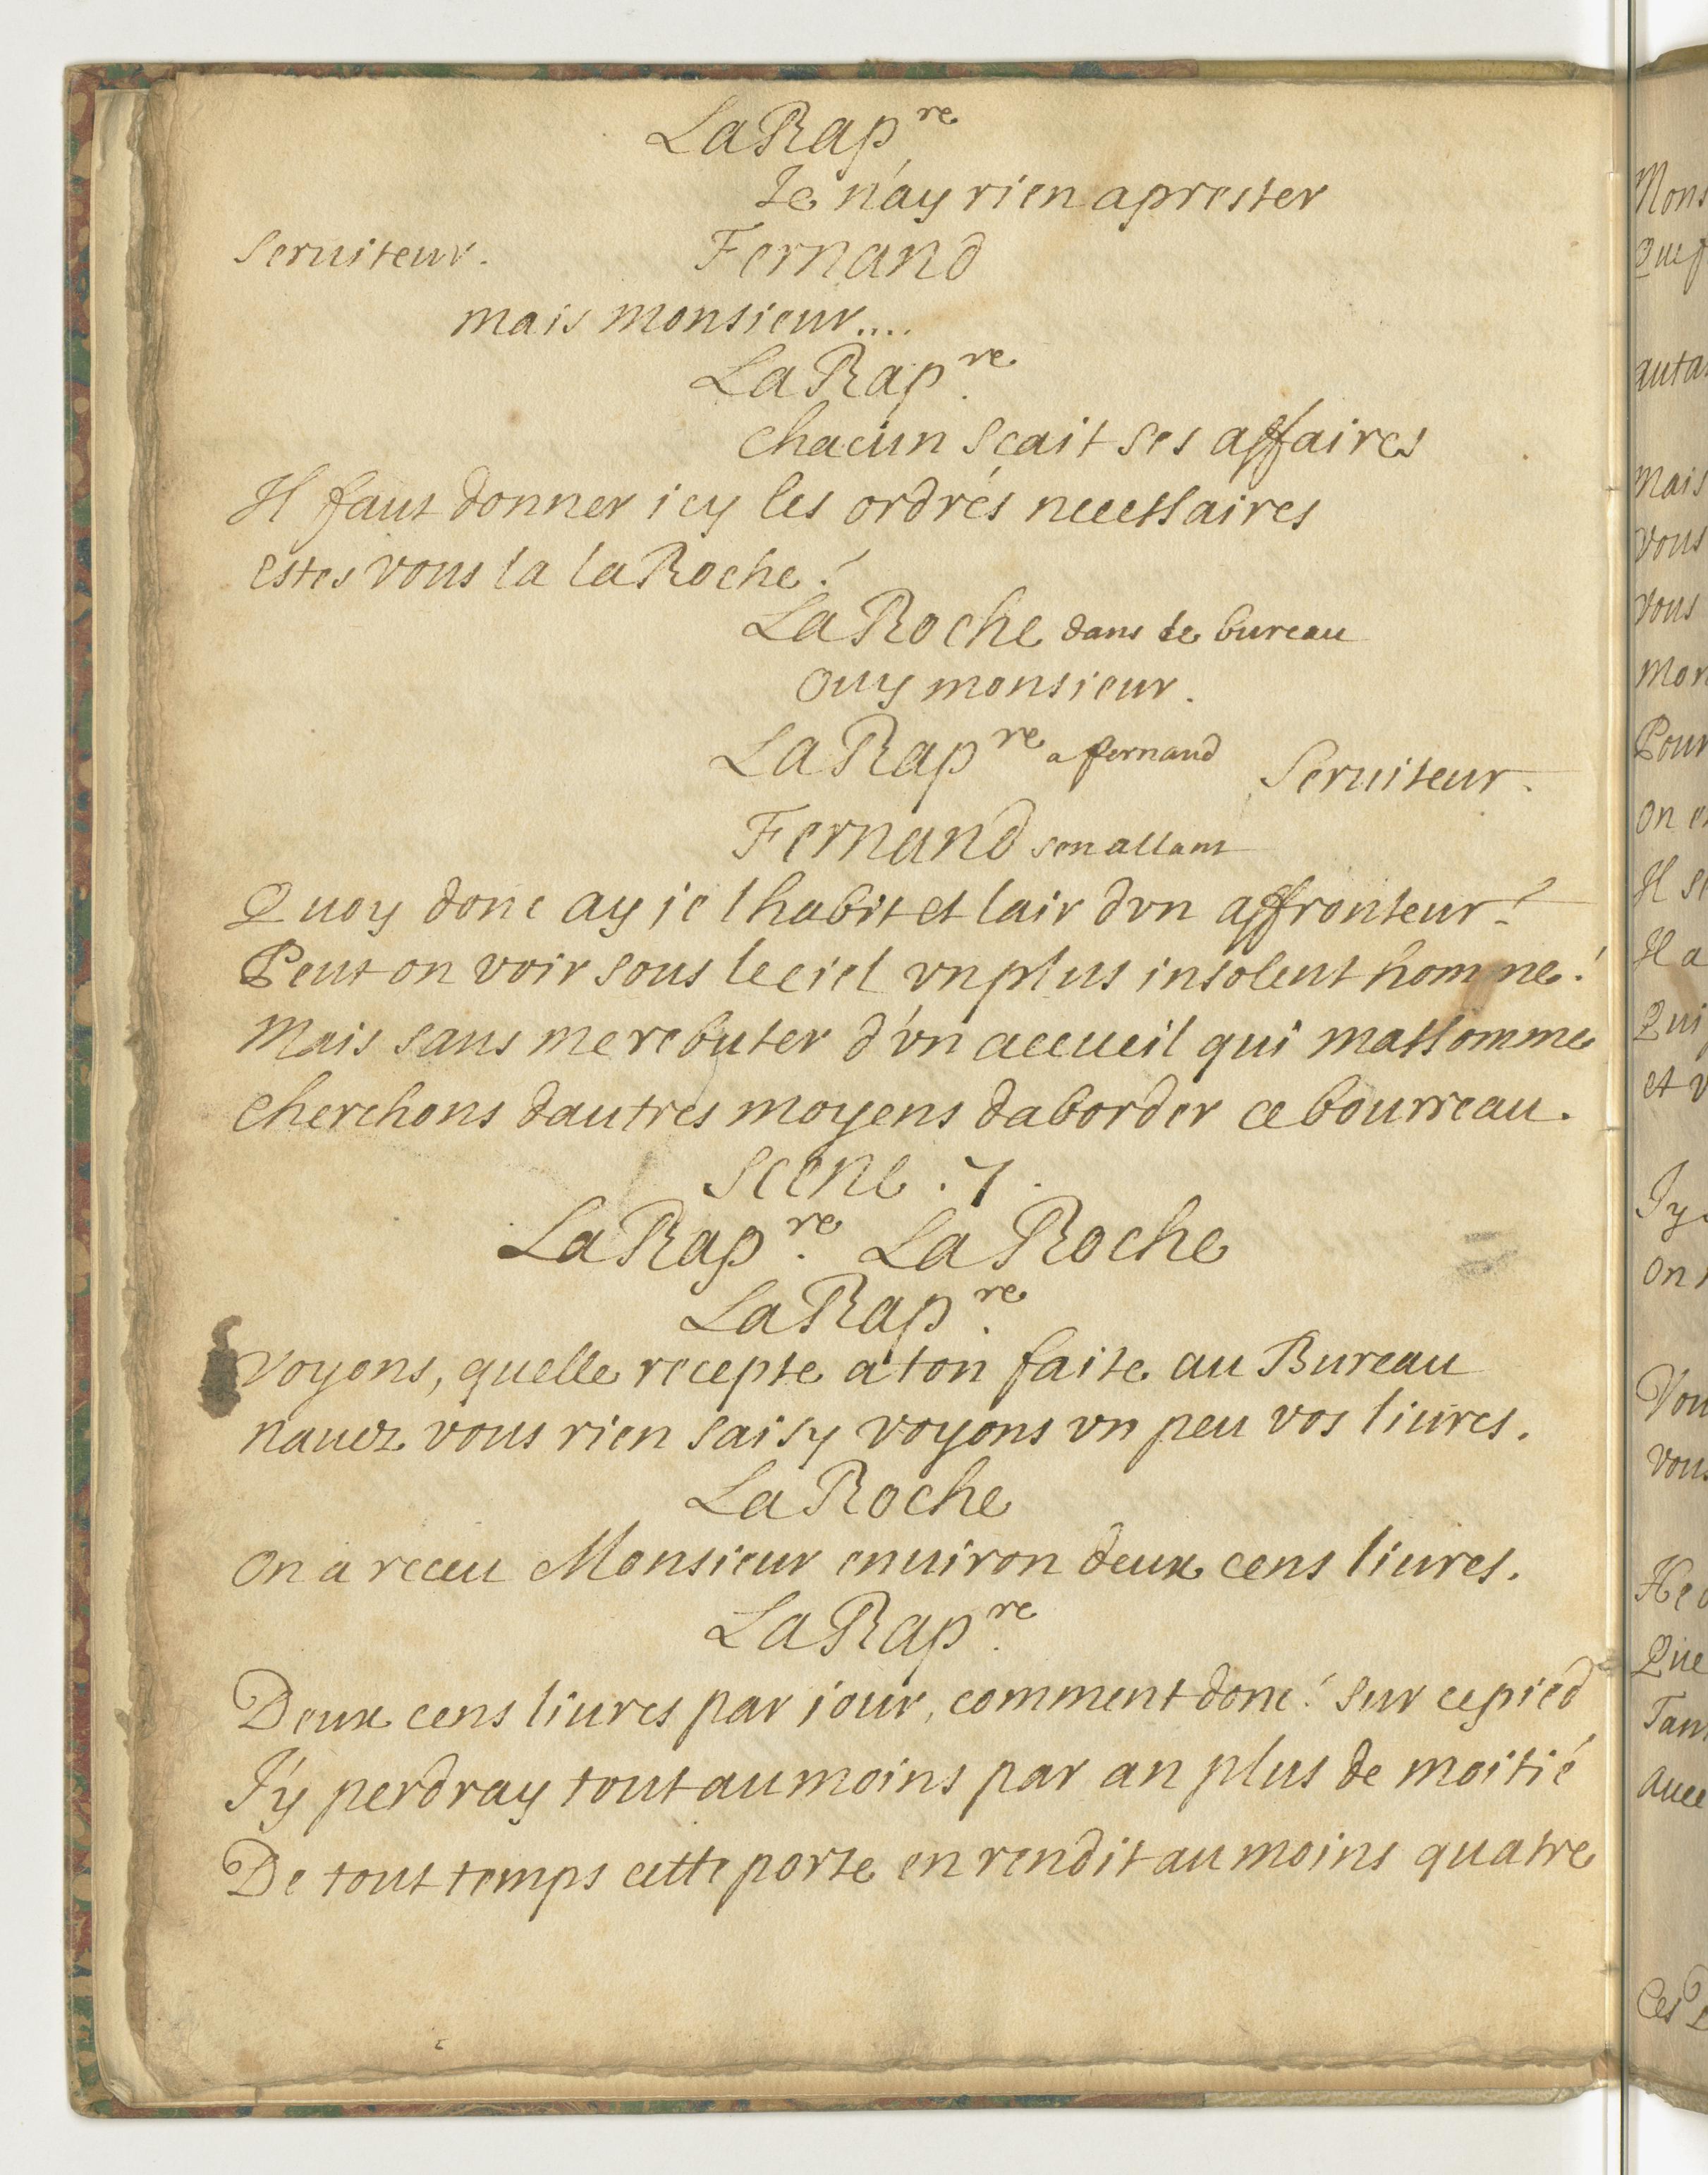 LaRap^re
Je n'ay rien aprester
seruiteur.
Fernand
mais monsieur....
LaRap^re.
chacun scait ses affaires
Il faut donner icy les ordres necessaires
estes vous la laRoche?
LaRoche dans le bureau
ouy monsieur.
LaRap^re a fernand
Seruiteur.
Fernand senallant
Quoy donc ay je lhabit et lair dvn affronteur?
Peut on voir sous le ciel vn plus insolent homme!
Mais sans me rebuter d'vn accueil qui massomme
cherchons dautres moyens daborder ce bourreau.
scene .7.
LaRap^re. LaRoche
LaRap^re.
voyons, quelle recepte a'ton faite au Bureau
nauez vous rien saisy voyons vn peu vos liures.
LaRoche
on a receu Monsieur enuiron deux cens liures.
LaRap^re.
Deux cens liures par jour, comment donc! sur ce pied
J'y perdray tout au moins par an plus de moitié
De tout temps cette porte en rendit au moins quatre